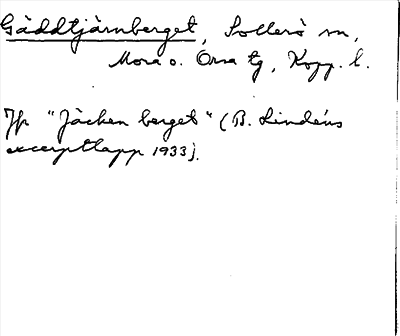 Gäddtjärnberget, Sollerö sn,
Mora o. Orsa tg, Kopp. l.
Jfr "Jäcken berget" (B. Lindéns
excerptlapp 1933).